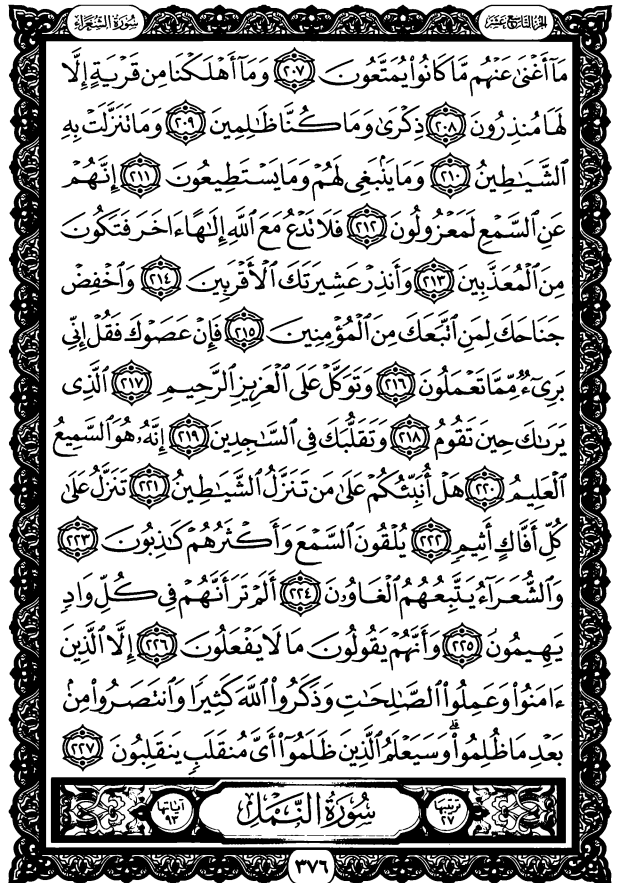 سُورَةُ الشُّعَرَاءِ
الجُزْءُ التَّاسِعَ عَشَرَ
مَآ أَغْنَىٰ عَنْهُم مَّا كَانُوا۟ يُمَتَّعُونَ ﴿٢٠٧﴾ وَمَآ أَهْلَكْنَا مِن قَرْيَةٍ إِلَّا
لَهَا مُنذِرُونَ ﴿٢٠٨﴾ ذِكْرَىٰ وَمَا كُنَّا ظَٰلِمِينَ ﴿٢٠٩﴾ وَمَا تَنَزَّلَتْ بِهِ
الشَّيَٰطِينُ ﴿٢١٠﴾ وَمَا يَنۢبَغِى لَهُمْ وَمَا يَسْتَطِيعُونَ ﴿٢١١﴾ إِنَّهُمْ
عَنِ السَّمْعِ لَمَعْزُولُونَ ﴿٢١٢﴾ فَلَا تَدْعُ مَعَ اللَّهِ إِلَٰهًا ءَاخَرَ فَتَكُونَ
مِنَ الْمُعَذَّبِينَ ﴿٢١٣﴾ وَأَنذِرْ عَشِيرَتَكَ الْأَقْرَبِينَ ﴿٢١٤﴾ وَاخْفِضْ
جَنَاحَكَ لِمَنِ اتَّبَعَكَ مِنَ الْمُؤْمِنِينَ ﴿٢١٥﴾ فَإِنْ عَصَوْكَ فَقُلْ إِنِّى
بَرِىٓءٌ مِّمَّا تَعْمَلُونَ ﴿٢١٦﴾ وَتَوَكَّلْ عَلَى الْعَزِيزِ الرَّحِيمِ ﴿٢١٧﴾ الَّذِى
يَرَىٰكَ حِينَ تَقُومُ ﴿٢١٨﴾ وَتَقَلُّبَكَ فِى السَّٰجِدِينَ ﴿٢١٩﴾ إِنَّهُۥ هُوَ السَّمِيعُ
الْعَلِيمُ ﴿٢٢٠﴾ هَلْ أُنَبِّئُكُمْ عَلَىٰ مَن تَنَزَّلُ الشَّيَٰطِينُ ﴿٢٢١﴾ تَنَزَّلُ عَلَىٰ
كُلِّ أَفَّاكٍ أَثِيمٍ ﴿٢٢٢﴾ يُلْقُونَ السَّمْعَ وَأَكْثَرُهُمْ كَٰذِبُونَ ﴿٢٢٣﴾
وَالشُّعَرَآءُ يَتَّبِعُهُمُ الْغَاوُۥنَ ﴿٢٢٤﴾ أَلَمْ تَرَ أَنَّهُمْ فِى كُلِّ وَادٍ
يَهِيمُونَ ﴿٢٢٥﴾ وَأَنَّهُمْ يَقُولُونَ مَا لَا يَفْعَلُونَ ﴿٢٢٦﴾ إِلَّا الَّذِينَ
ءَامَنُوا۟ وَعَمِلُوا۟ الصَّٰلِحَٰتِ وَذَكَرُوا۟ اللَّهَ كَثِيرًا وَانتَصَرُوا۟ مِنۢ
بَعْدِ مَا ظُلِمُوا۟ ۗ وَسَيَعْلَمُ الَّذِينَ ظَلَمُوٓا۟ أَىَّ مُنقَلَبٍ يَنقَلِبُونَ ﴿٢٢٧﴾
ترتيبها ٢٧ سُورَةُ النَّمْلِ آياتها ٩٣
٣٧٦